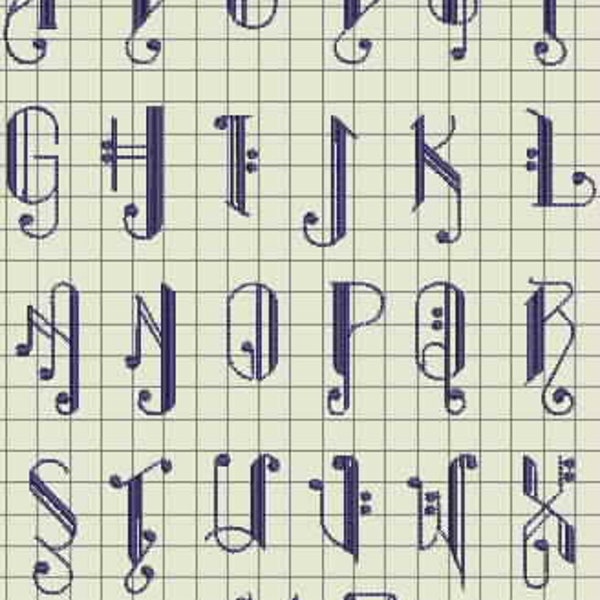 G H I J K L
M N O P Q R
S T U V W X